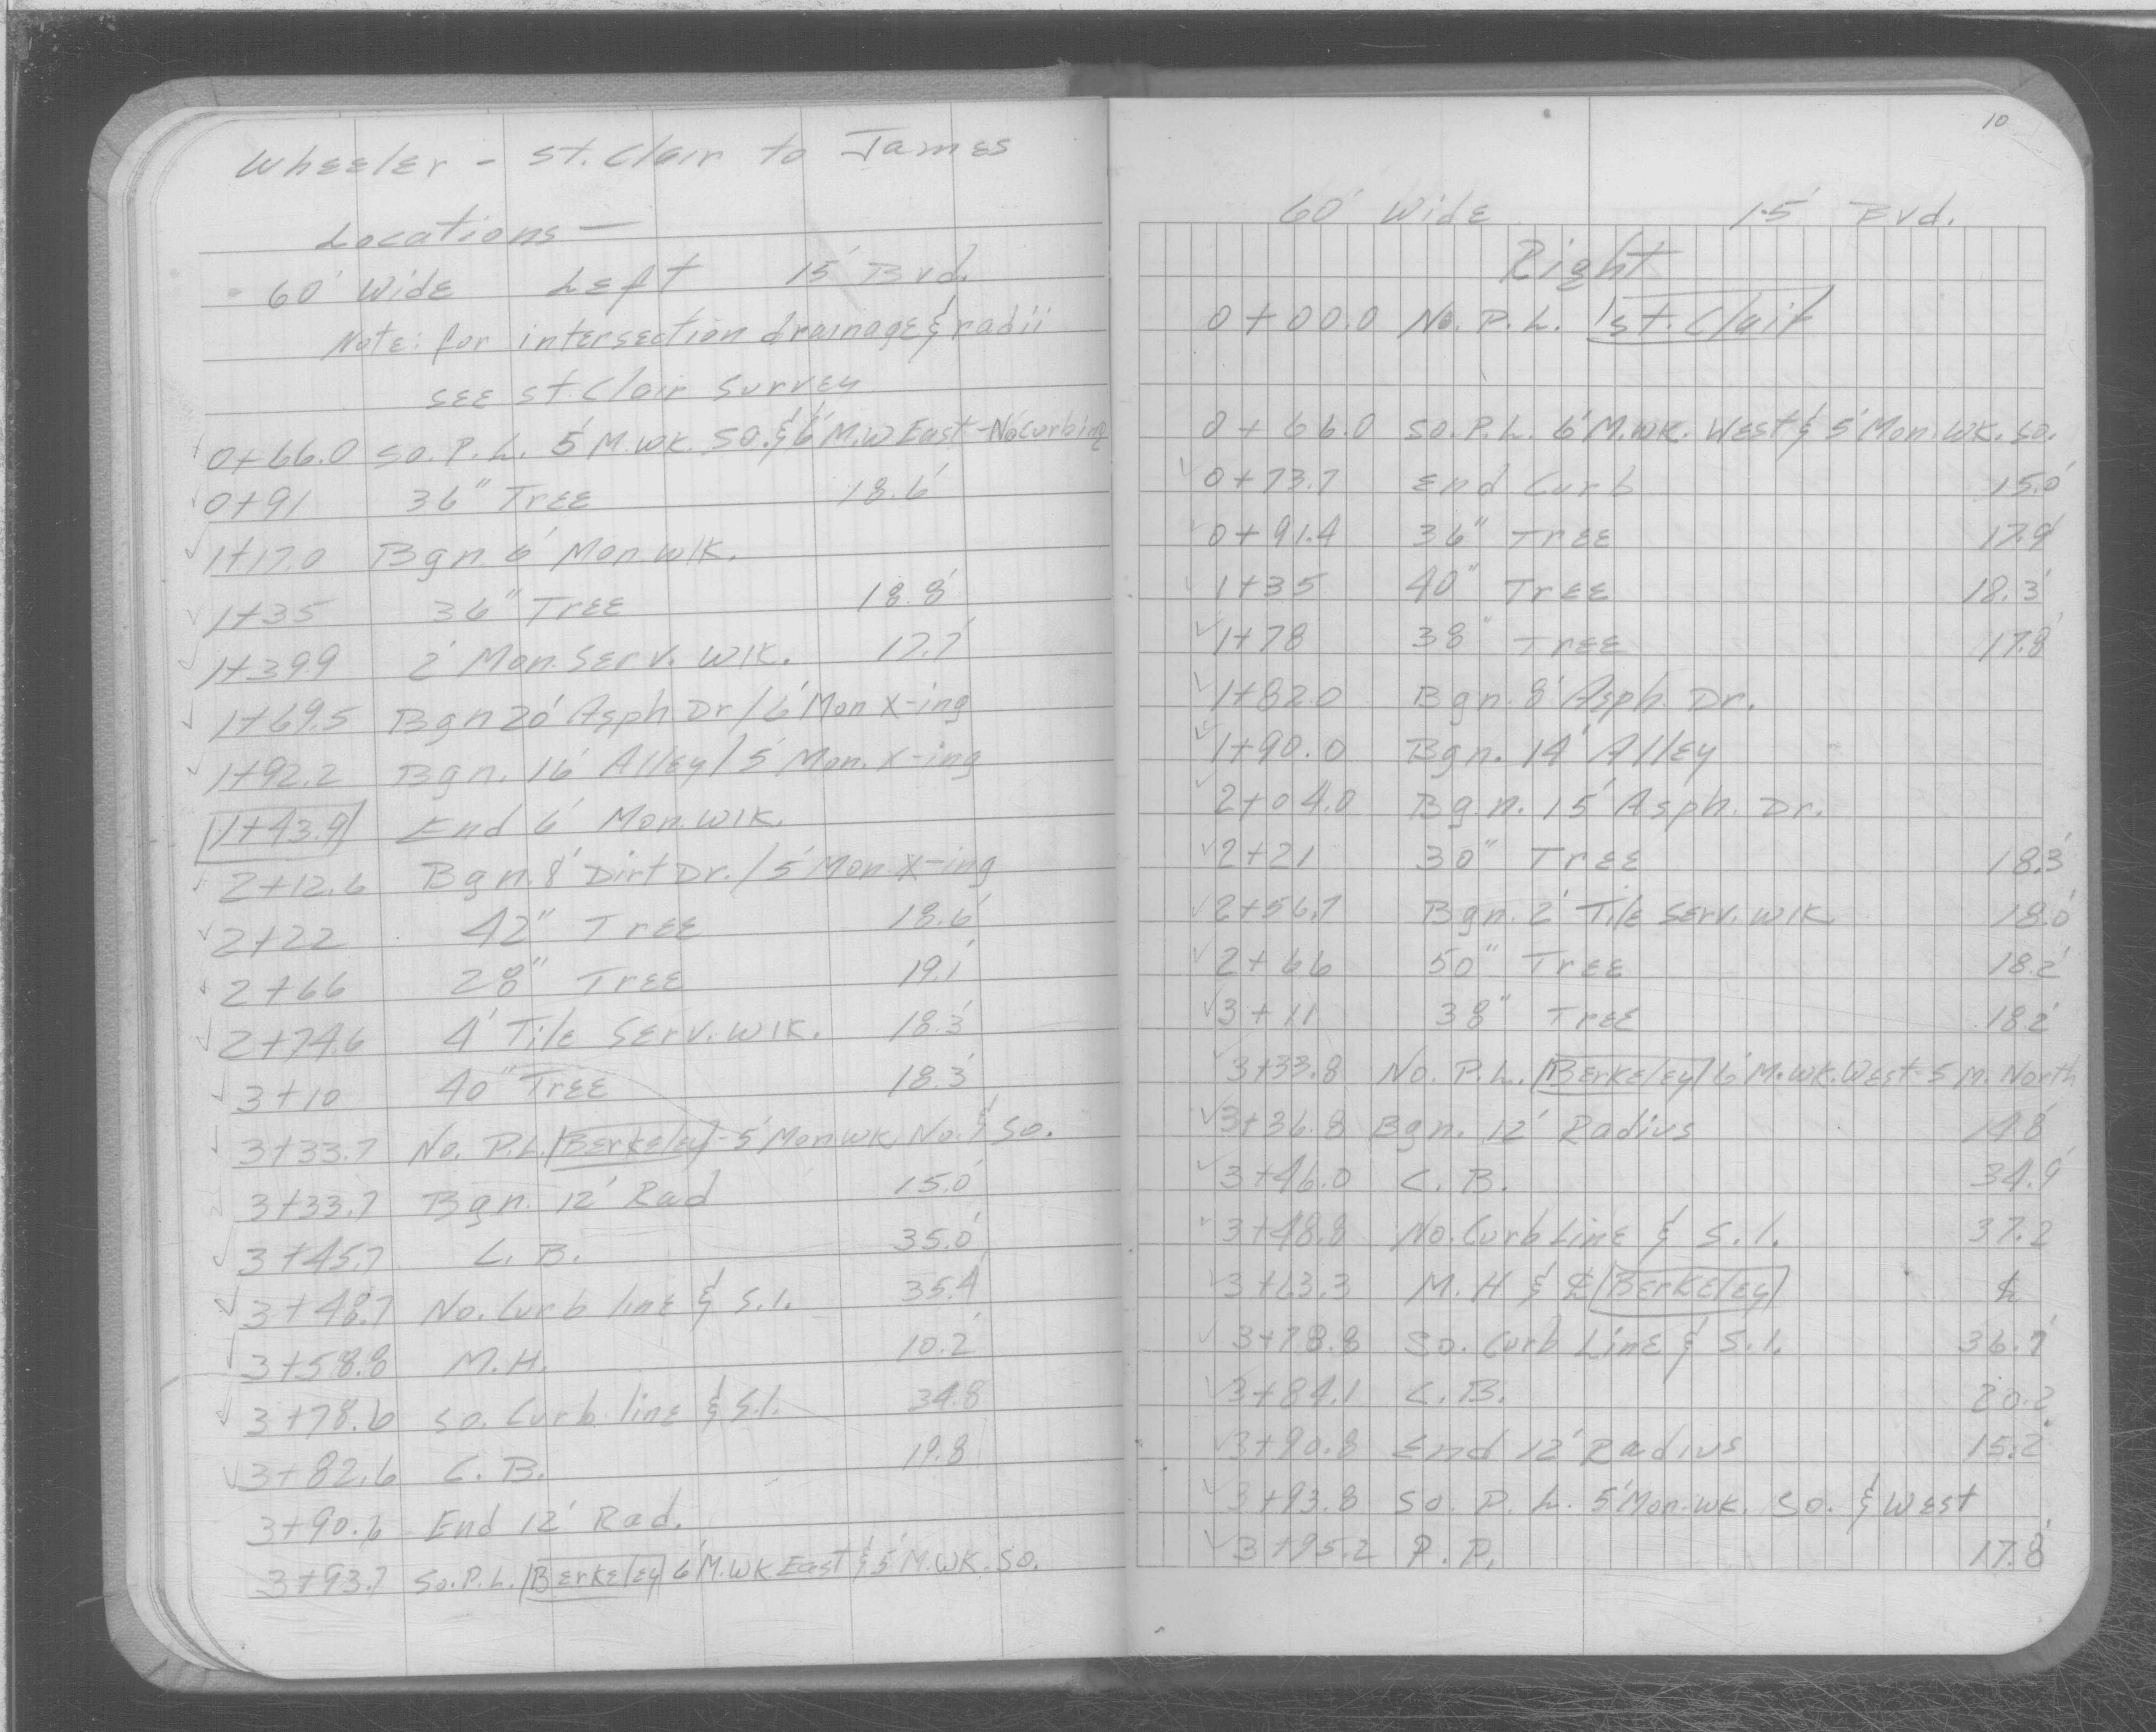 Wheeler - St. Clair to James
Locations -
60' Wide Left 15' Bvd.
Note: for intersection drainage & radii
see St. Clair Survey
0+66.0 So. P. L. 5' M. Wk. So. & 6' M.W East - No Curbing
0+91 36" Tree 18.6'
1+17.0 Bgn. 6' Mon. Wlk.
1+35 36" Tree 18.8'
1+39.9 2' Mon. Serv. Wlk. 17.7'
1+69.5 Bgn 20' Asph Dr / 6' Mon X-ing
1+92.2 Bgn. 16' Alley / 5' Mon. X-ing
1+43.9 End 6' Mon. Wlk.
2+12.6 Bgn. 8' Dirt Dr. / 5' Mon X-ing
2+22 42" Tree 18.6'
2+66 28" Tree 19.1'
2+74.6 4' Tile Serv. Wlk. 18.3'
3+10 40" Tree 18.3'
3+33.7 No. P.L. Berkeley - 5' Mon Wk No. & So.
3+33.7 Bgn. 12' Rad 15.0'
3+45.7 C. B. 35.0'
3+48.7 No. Curb line & S.I. 35.4'
3+58.8 M. H. 10.2'
3+78.6 So. Curb line & S.I. 34.8
3+82.6 C. B. 19.8
3+90.6 End 12' Rad.
3+93.7 So. P. L. Berkeley 6' M. Wk East & 5' M. Wk. So.
10
60' Wide 15' Bvd.
Right
0+00.0 No. P. L. St. Clair
0+66.0 So. P. L. 6' M. Wk. West & 5' Mon. Wk. So.
0+73.7 End Curb 15.0'
0+91.4 36" Tree 17.9'
1+35 40" Tree 18.3'
1+78 38" Tree 17.8'
1+82.0 Bgn. 8' Asph. Dr.
1+90.0 Bgn. 14' Alley
2+04.0 Bgn. 15' Asph. Dr.
2+21 30" Tree 18.3'
2+56.7 Bgn. 2' Tile Serv. Wlk. 18.0'
2+66 50" Tree 18.2'
3+11 38" Tree 18.2'
3+33.8 No. P. L. Berkeley 6' M. Wk. West - 5 M. North
3+36.8 Bgn. 12' Radius 14.8'
3+46.0 C. B. 34.9'
3+48.8 No. Curb Line & S. I. 37.2
3+63.3 M. H & ℄ Berkeley ℄
3+78.8 So. Curb Line & S. I. 36.7'
3+84.1 C. B. 20.2
3+90.8 End 12' Radius 15.2'
3+93.8 So. P. L. 5' Mon. Wk. So. & West
3+95.2 P. P. 17.8'